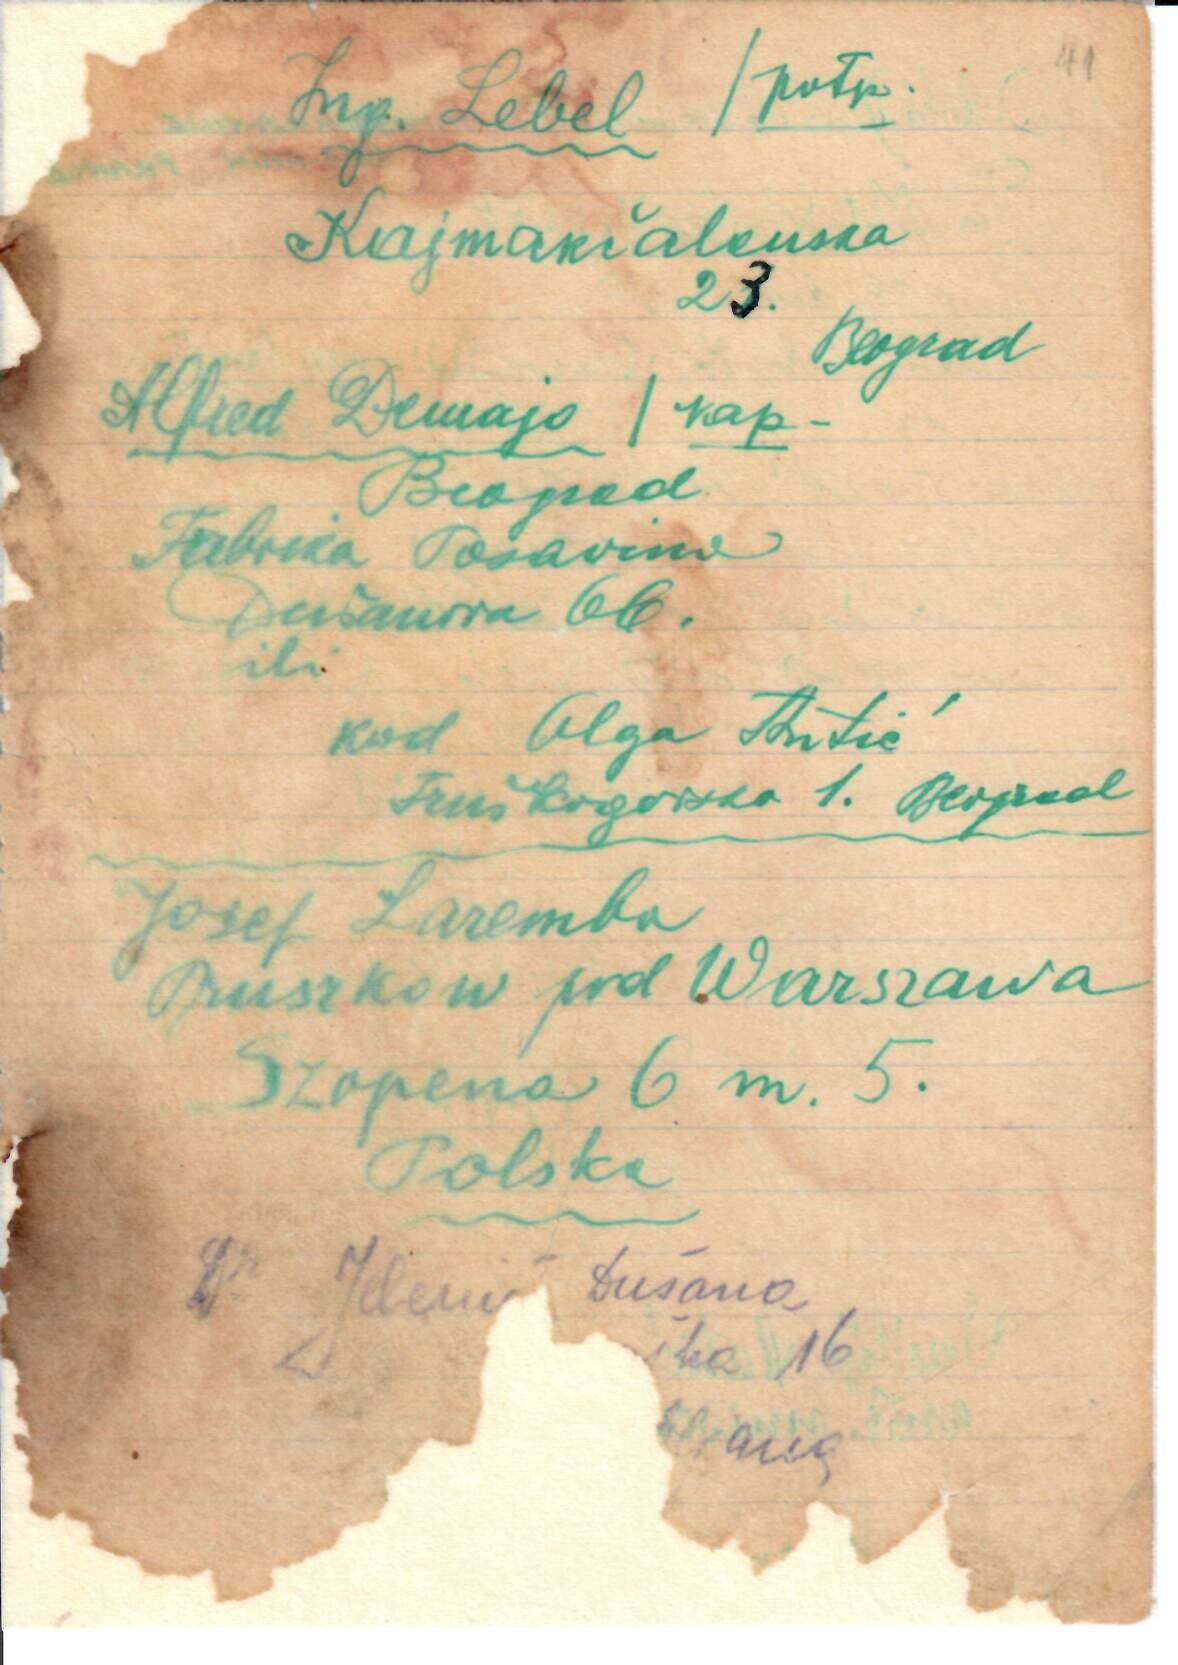 41
Ing. Lebel / potp.
Kajmakčalanska
23.
Beograd
Alfred Demajo / kap-
Beograd
Fabrika Posavina
Dušanova 66.
ili
kod Olga Antić
Fruškogorska 1. Beograd
Josef Zaremba
Pruszkow pod Warszawa
Szopena 6 m. 5.
Polska
Dr Jelenić Dušana
ška 16